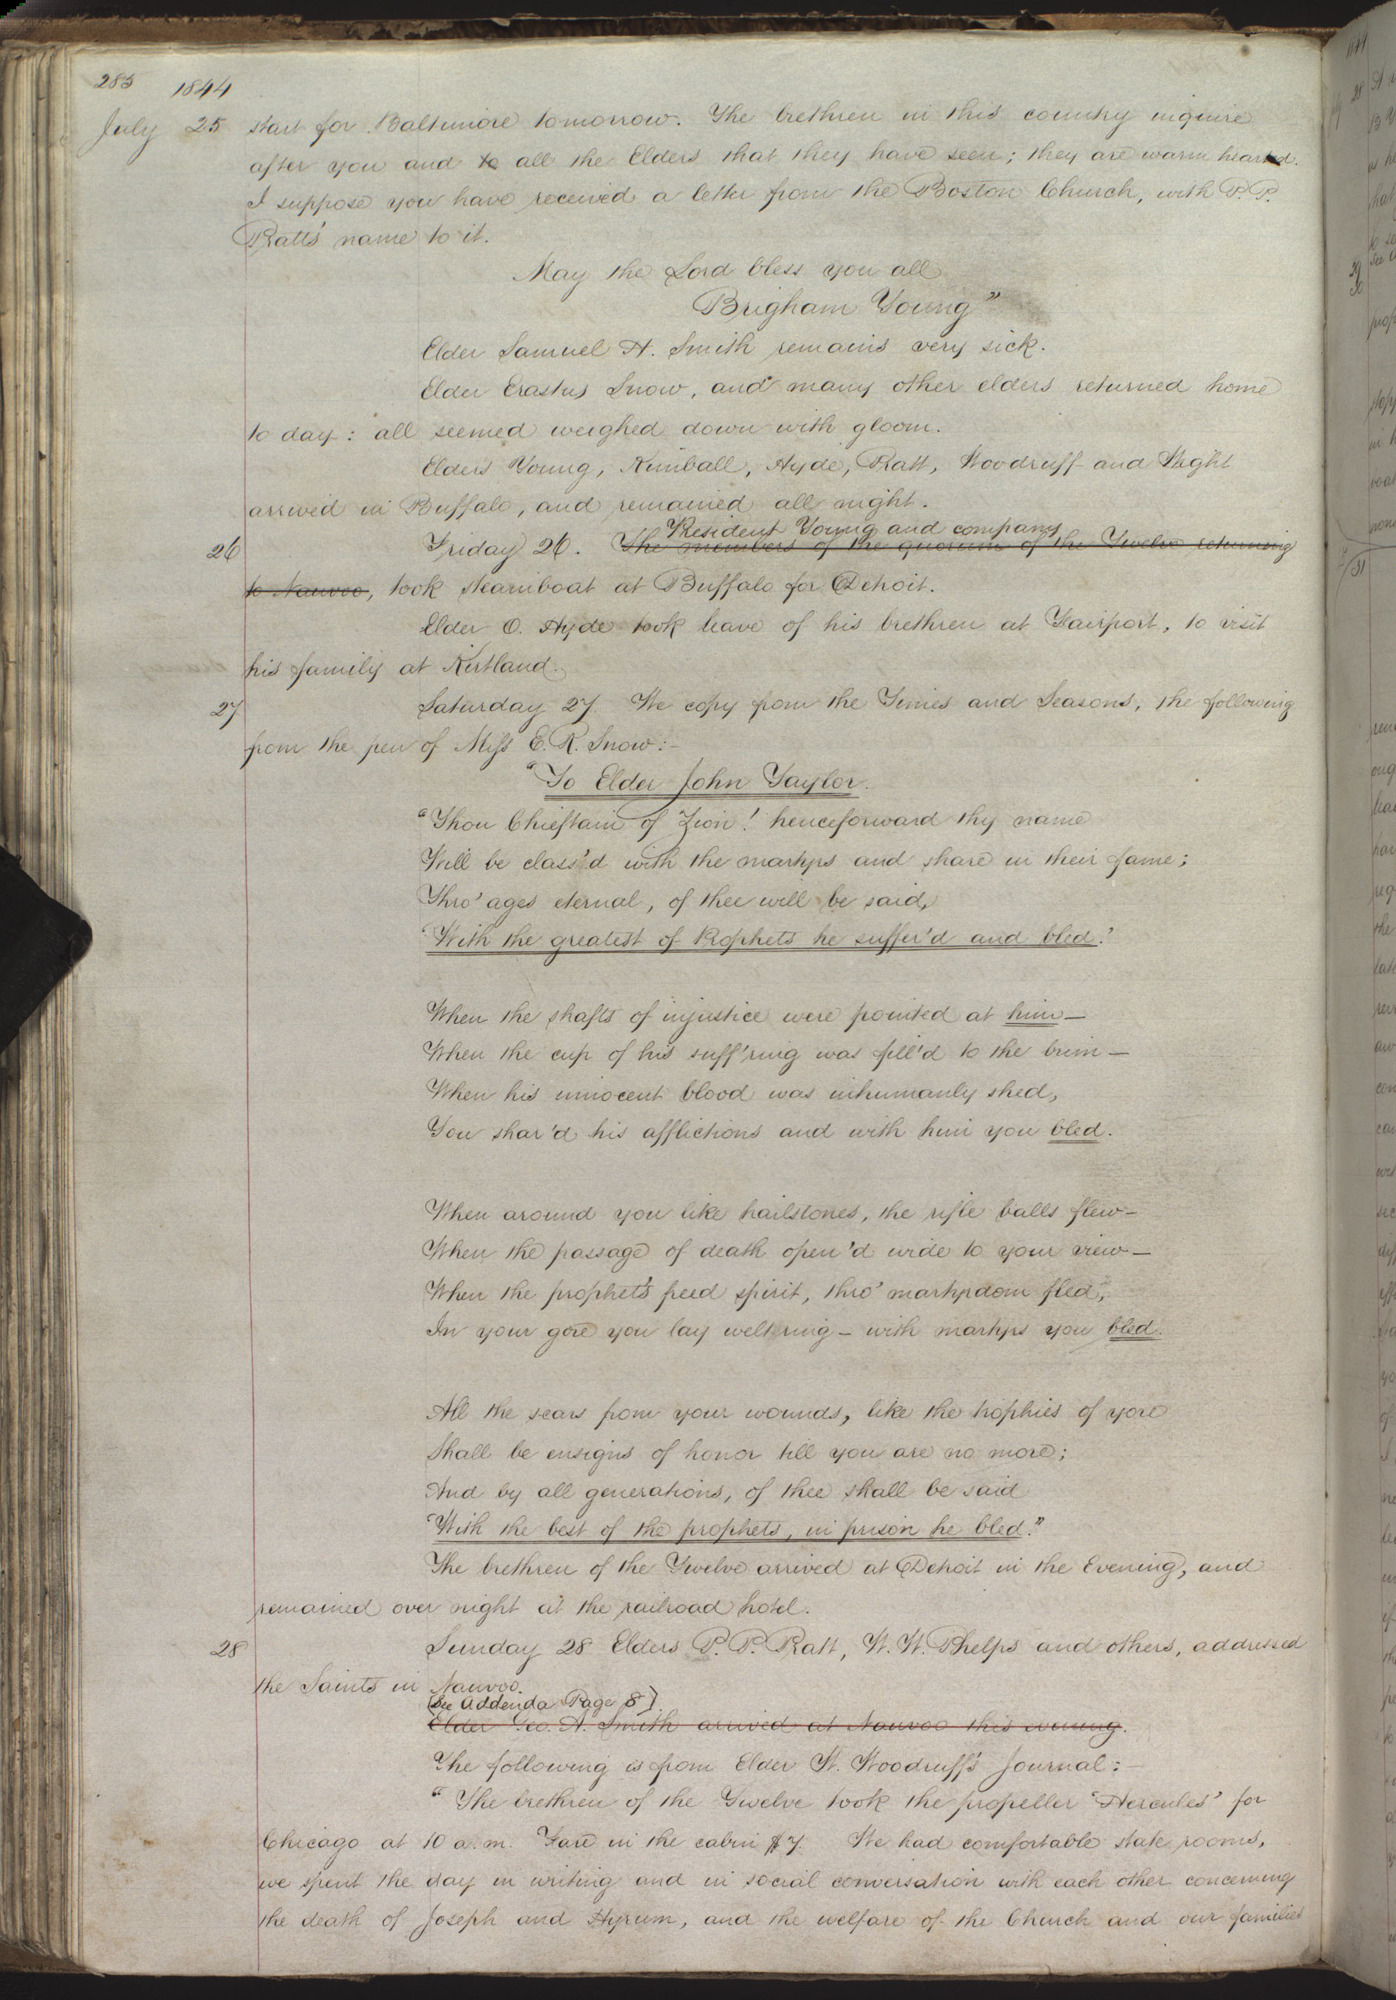 283 1844
July 25 start for Baltimore tomorrow. The brethren in this country inquire
after you and to all the Elders that they have seen; they are warm hearted.
I suppose you have received a letter from the Boston Church, with P. P.
Pratt's name to it.
May the Lord bless you all
Brigham Young"
Elder Samuel H. Smith remains very sick.
Elder Erastus Snow, and many other elders returned home
to day: all seemed weighed down with gloom.
Elders Young, Kimball, Hyde, Pratt, Woodruff and Wight
arrived in Buffalo, and remained all night.
President Young and company
26 Friday 26. The members of the quorum of the Twelve returning
to Nauvoo, took steamboat at Buffalo for Detroit.
Elder O. Hyde took leave of his brethren at Fairport, to visit
his family at Kirtland.
27 Saturday 27. We copy from the Times and Seasons, the following
from the pen of Miss E. R. Snow:-
"To Elder John Taylor.
"Thou Chieftain of Zion! henceforward thy name
Will be class'd with the martyrs and share in their fame;
Thro' ages eternal, of thee will be said,
'With the greatest of Prophets he suffer'd and bled.'
When the shafts of injustice were pointed at him—
When the cup of his suff'ring was fill'd to the brim—
When his innocent blood was inhumanly shed,
You shar'd his afflictions and with him you bled.
When around you like hailstones, the rifle balls flew—
When the passage of death open'd wide to your view—
When the prophet's freed spirit, thro' martyrdom fled,
In your gore you lay welt'ring— with martyrs you bled.
All the scars from your wounds, like the trophies of yore
Shall be ensigns of honor till you are no more;
And by all generations, of thee shall be said
'With the best of the prophets, in prison he bled."
The brethren of the Twelve arrived at Detroit in the Evening, and
remained over night at the railroad hotel.
28 Sunday 28 Elders P. P. Pratt, W. W. Phelps and others, addressed
the Saints in Nauvoo.
(See Addenda Page 8).
Elder Geo. A. Smith arrived at Nauvoo this evening.
The following is from Elder W. Woodruff's Journal:—
"The brethren of the Twelve took the propeller 'Hercules' for
Chicago at 10 a.m. Fare in the cabin $7. We had comfortable state rooms,
we spent the day in writing and in social conversation with each other concerning
the death of Joseph and Hyrum, and the welfare of the Church and our families